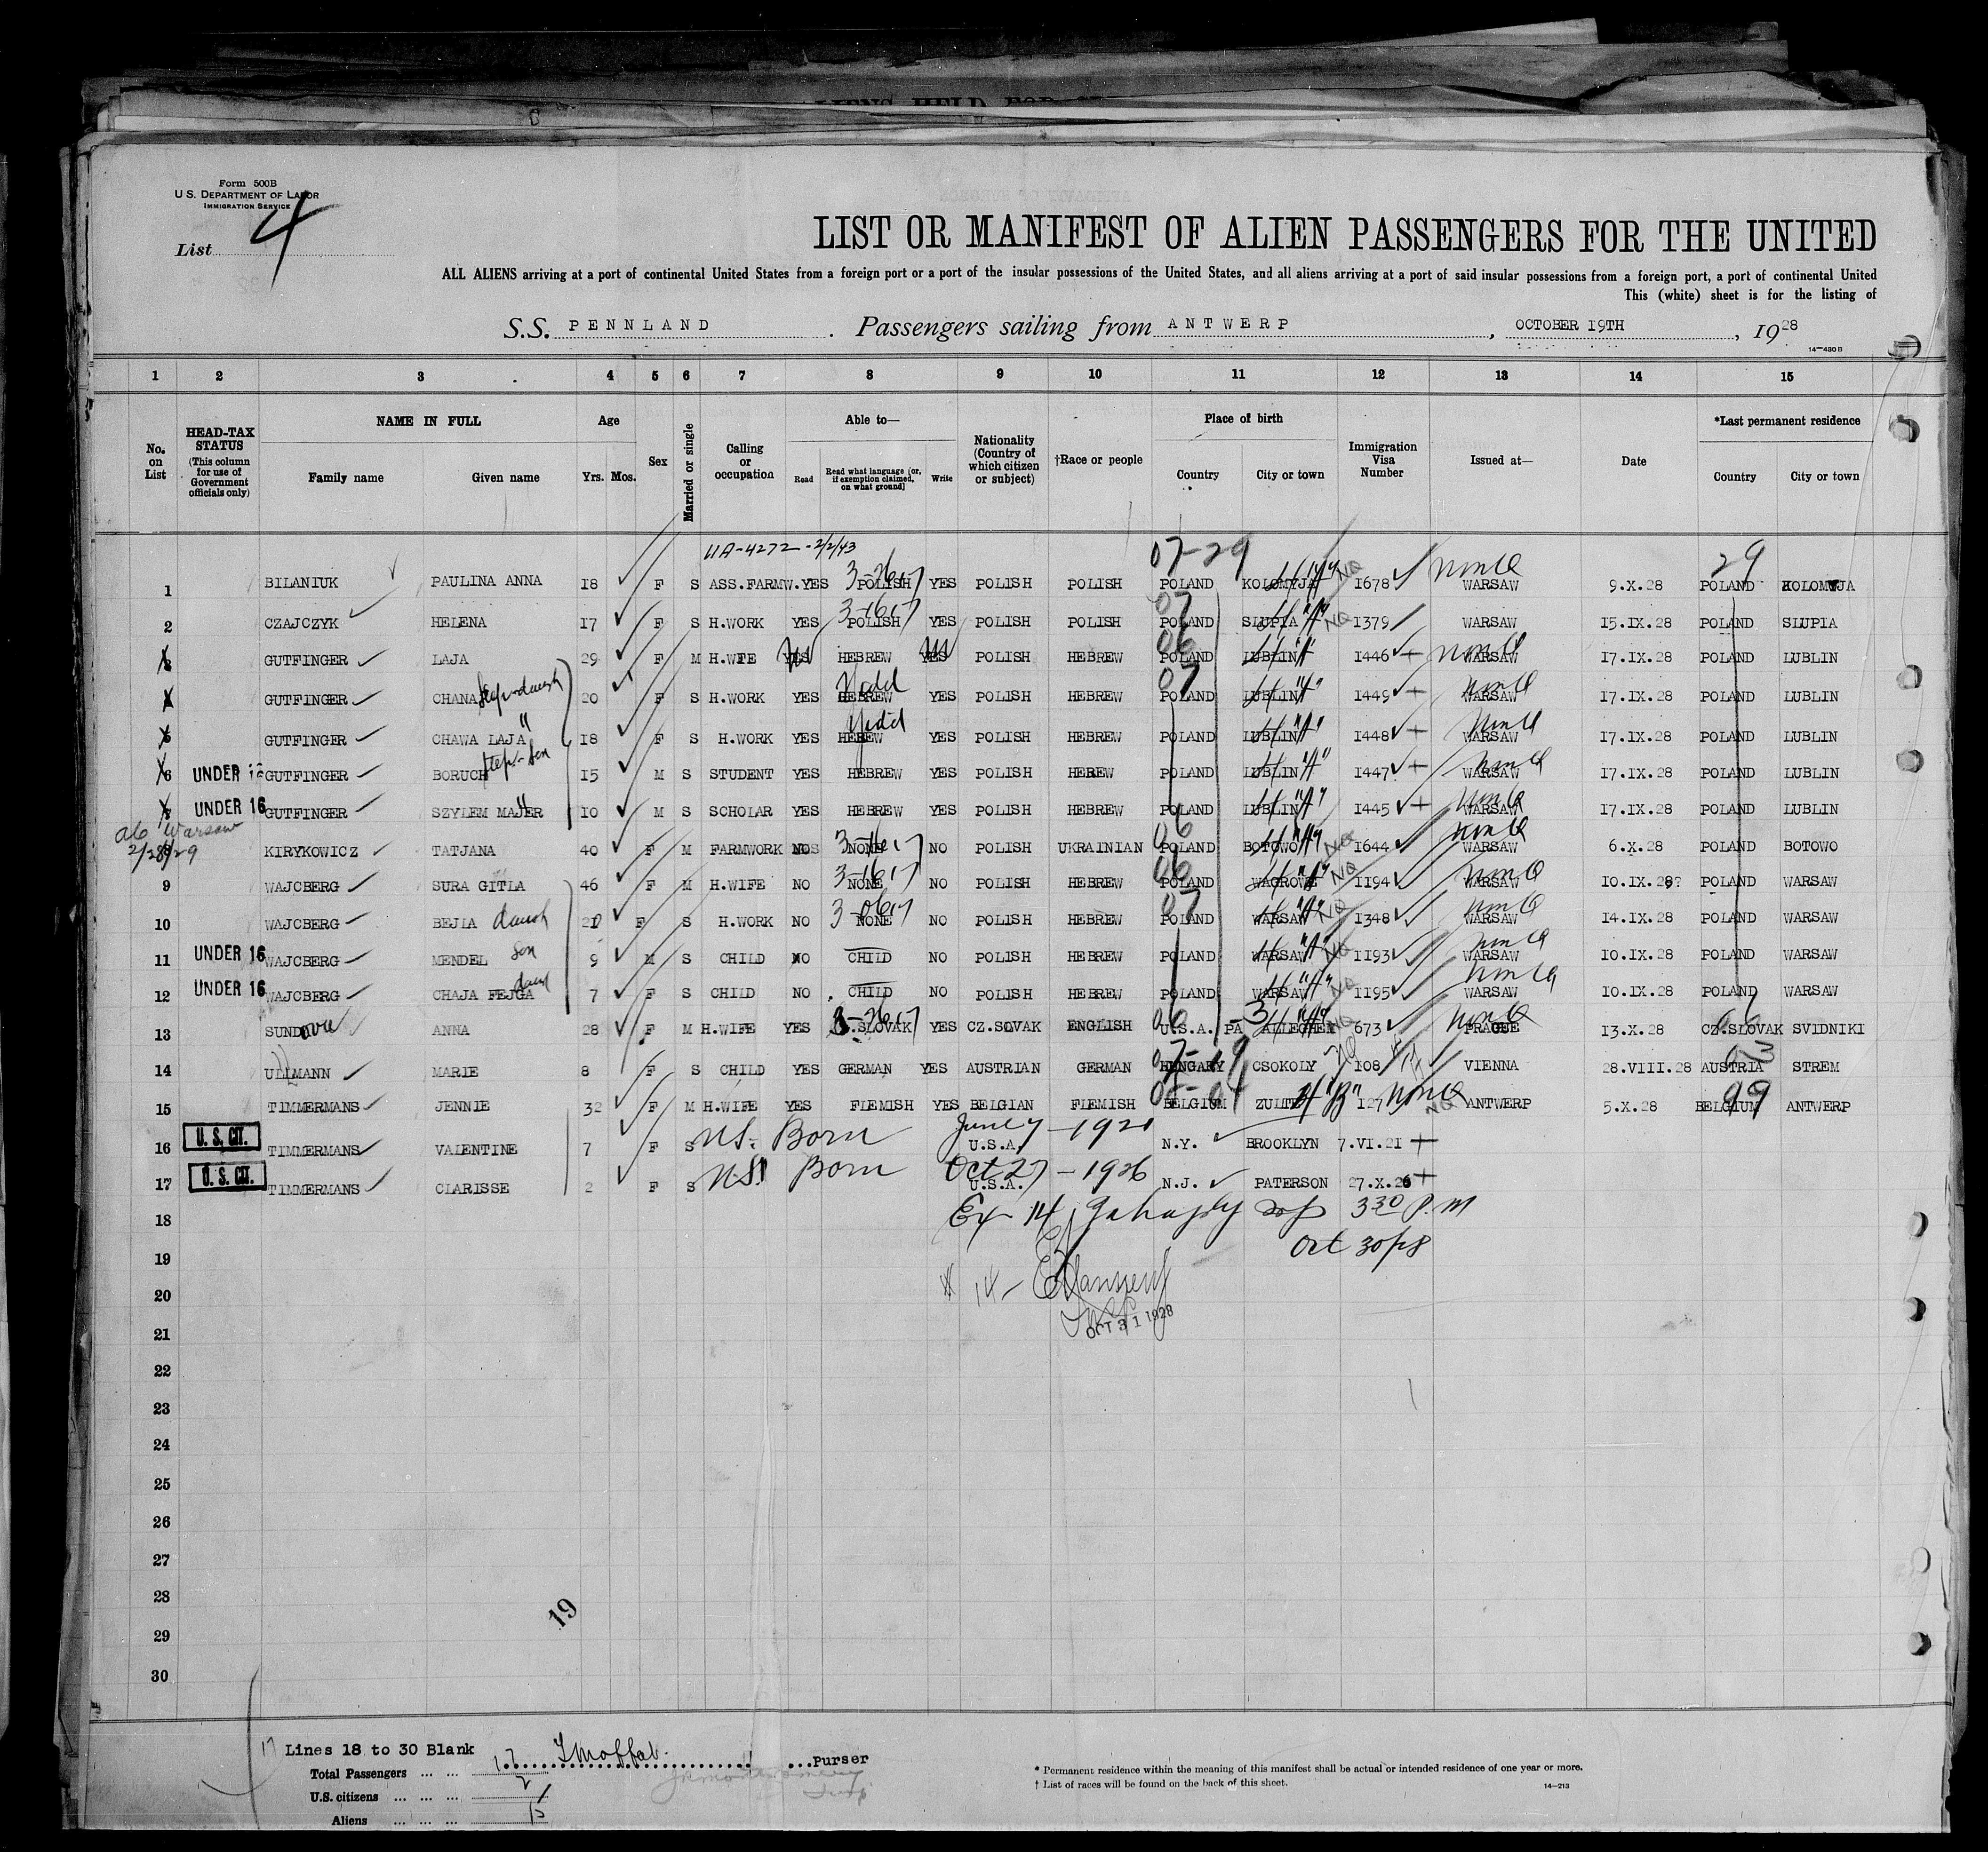 Form 500B
U. S. DEPARTMENT OF LABOR
IMMIGRATION SERVICE
List 4
LIST OR MANIFEST OF ALIEN PASSENGERS FOR THE UNITED
ALL ALIENS arriving at a port of continental United States from a foreign port or a port of the insular possessions of the United States, and all aliens arriving at a port of said insular possessions from a foreign port, a port of continental United
This (white) sheet is for the listing of
S.S. PENNLAND . Passengers sailing from ANTWERP , OCTOBER 19TH , 1928
14—430 B
1 2 3 4 5 6 7 8 9 10 11 12 13 14 15
No. on List
HEAD-TAX STATUS (This column for use of Government officials only)
NAME IN FULL Family name Given name
Age Yrs. Mos.
Sex
Married or single
Calling or occupation
Able to— Read Read what language [or, if exemption claimed, on what ground] Write
Nationality (Country of which citizen or subject)
†Race or people
Place of birth Country City or town
Immigration Visa Number
Issued at—
Date
*Last permanent residence Country City or town
UA-4272-2/2/43 07-29 29
1 BILANIUK PAULINA ANNA 18 F S ASS.FARMW. YES POLISH YES POLISH POLISH POLAND KOLOMYJA 1678 WARSAW 9.X.28 POLAND KOLOMYJA
2 CZAJCZYK HELENA 17 F S H.WORK YES POLISH YES POLISH POLISH POLAND SLUPIA 1379 WARSAW 15.IX.28 POLAND SLUPIA
3 GUTFINGER LAJA 29 F M H.WIFE YES HEBREW YES POLISH HEBREW POLAND LUBLIN 1446 WARSAW 17.IX.28 POLAND LUBLIN
4 GUTFINGER CHANA Step-daugh 20 F S H.WORK YES HEBREW Yidd YES POLISH HEBREW POLAND LUBLIN 1449 WARSAW 17.IX.28 POLAND LUBLIN
5 GUTFINGER CHAWA LAJA " 18 F S H.WORK YES HEBEW Yidd YES POLISH HEBREW POLAND LUBLIN 1448 WARSAW 17.IX.28 POLAND LUBLIN
6 UNDER 16 GUTFINGER BORUCH step-son 15 M S STUDENT YES HEBREW YES POLISH HEREW POLAND LUBLIN 1447 WARSAW 17.IX.28 POLAND LUBLIN
7 UNDER 16 GUTFINGER SZYLEM MAJER " 10 M S SCHOLAR YES HEBREW YES POLISH HEBREW POLAND LUBLIN 1445 WARSAW 17.IX.28 POLAND LUBLIN
Warsaw 2/28/29
8 KIRYKOWICZ TATJANA 40 F M FARMWORK NO NONE NO POLISH UKRAINIAN POLAND BOTOWO 1644 WARSAW 6.X.28 POLAND BOTOWO
9 WAJCBERG SURA GITLA 46 F M H.WIFE NO NONE NO POLISH HEBREW POLAND WAGROWE 1194 WARSAW 10.IX.28? POLAND WARSAW
10 WAJCBERG BEJLA daugh 21 F S H.WORK NO NONE NO POLISH HEBREW POLAND WARSAW 1348 WARSAW 14.IX.28 POLAND WARSAW
11 UNDER 16 WAJCBERG MENDEL son 9 M S CHILD NO CHILD NO POLISH HEBREW POLAND WARSAW 1193 WARSAW 10.IX.28 POLAND WARSAW
12 UNDER 16 WAJCBERG CHAJA FEJGA daug 7 F S CHILD NO CHILD NO POLISH HEBREW POLAND WARSAW 1195 WARSAW 10.IX.28 POLAND WARSAW
13 SUNDOVIC ANNA 28 F M H.WIFE YES C.SLOVAK YES CZ.SOVAK ENGLISH U.S.A. PA ALLEGHEN 673 PRAGUE 13.X.28 CZ.SLOVAK SVIDNIKI
14 ULLMANN MARIE 8 F S CHILD YES GERMAN YES AUSTRIAN GERMAN HUNGARY CSOKOLY 108 VIENNA 28.VIII.28 AUSTRIA STREM
15 TIMMERMANS JENNIE 32 F M H.WIFE YES FLEMISH YES BELGIAN FLEMISH BELGIUM ZULTE 127 ANTWERP 5.X.28 BELGIUM ANTWERP
16 U. S. CIT. TIMMERMANS VALENTINE 7 F S U.S. Born June 7-1921 U.S.A. N.Y. BROOKLYN 7.VI.21
17 U. S. CIT. TIMMERMANS CLARISSE 2 F S U.S. Born Oct 27-1926 U.S.A. N.J. PATERSON 27.X.26
18 Ex 14 330 P.M
19 Oct 30/28
20 # 14-
21 OCT 31 1928
22
23
24
25
26
27
28
29
30
19
17 Lines 18 to 30 Blank
Total Passengers 17 Purser
U.S. citizens 2
Aliens 15
* Permanent residence within the meaning of this manifest shall be actual or intended residence of one year or more.
† List of races will be found on the back of this sheet.
14—213